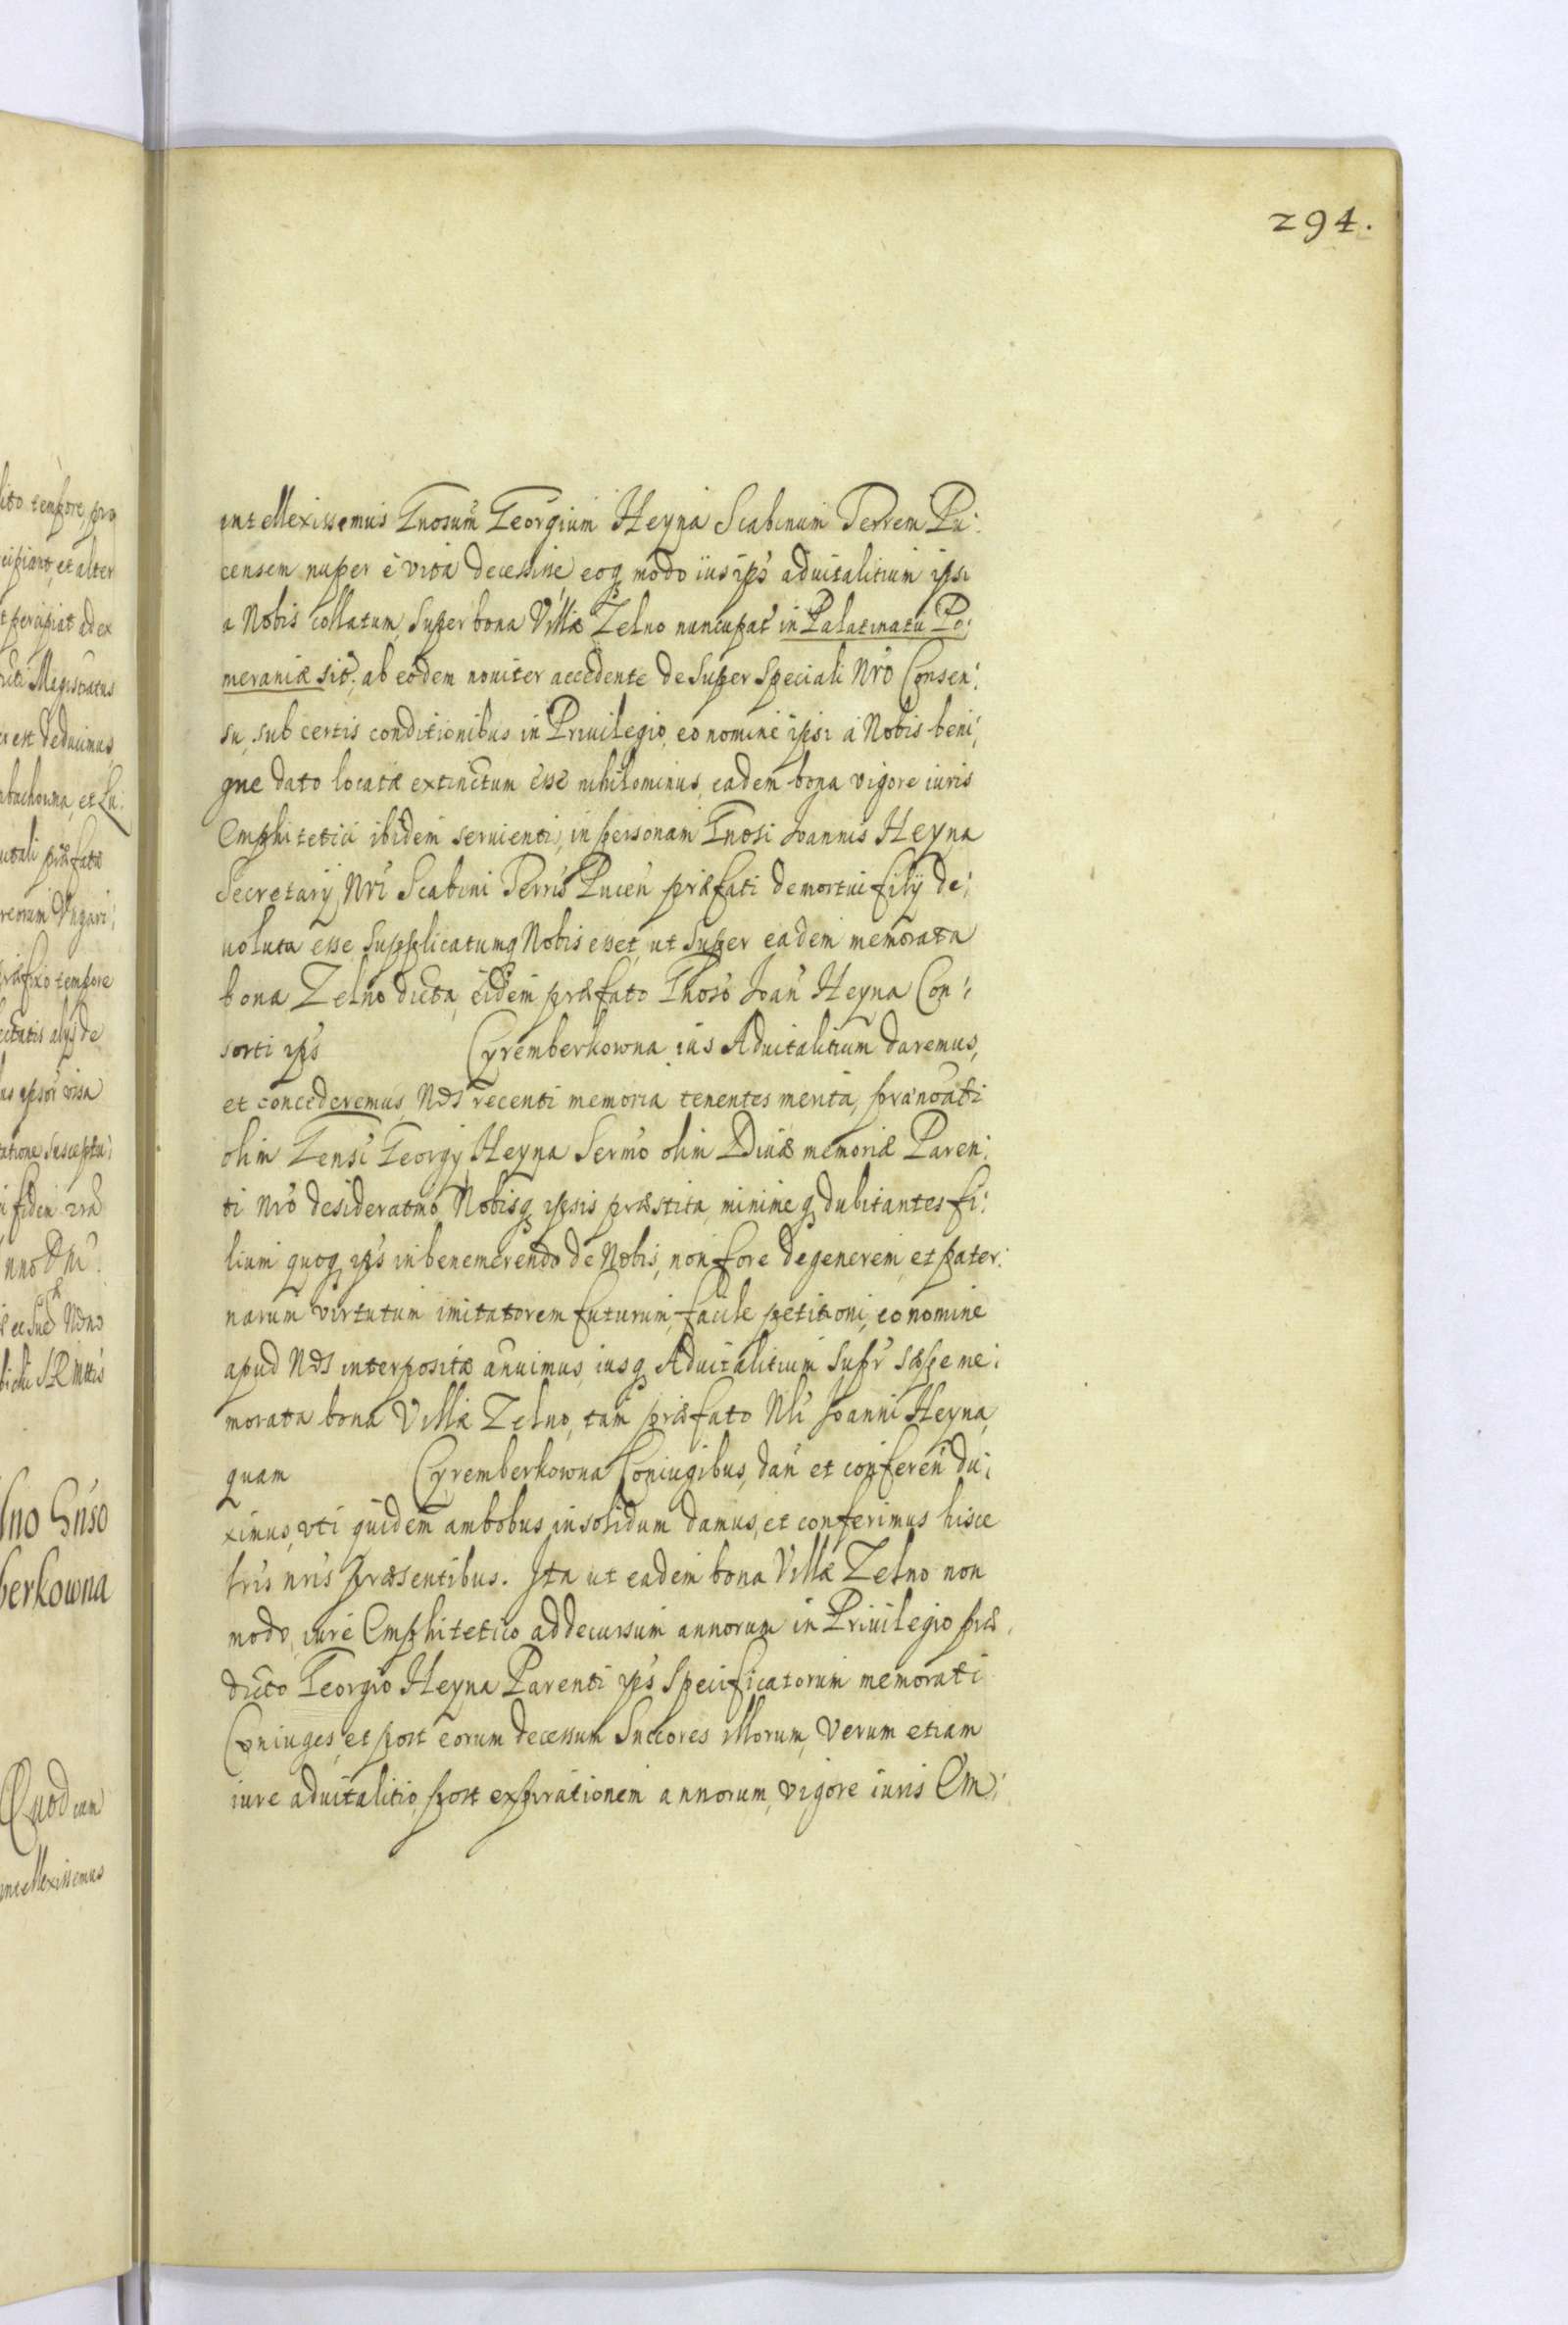 294.
intellexissemus Gnosum Georgium Heyna Scabinum Terrem Pu:
censem nuper è vita decessisse eoq modo ius ips aduitalitium ipsi
a Nobis collatum, super bona Villæ Zelno nuncupat in Palatinatu Po:
meraniæ sit: ab eodem nouiter accedente desuper speciali Nro Consen:
su, sub certis conditionibus in Priuilegio, eo nomine ipsi a Nobis beni:
gne dato locatæ extinctum esse nihilominus, eadem bona vigore iuris
Emphitetici ibidem seruienti, in personam Gnosi Joannis Heyna
Secretarij Nri Scabini Terris Pucen præfati demortui filij de:
uoluta esse supplicatumq Nobis esset, ut super eadem memorata
bona Zelno dicta, eidem præfato Gnoso Joan Heyna Con:
sorti ips Cyremberkowna ius Aduitalitium daremus,
et concederemus, Nos recenti memoria tenentes merita, prænoati
olim Gensi Georgij Heyna Sermo olim Diuæ memoriæ Paren:
ti Nro desideratmo Nobisq ipsis præstita, minimeq dubitantes fi:
lium quoq ips in benemerendo de Nobis, non fore degenerem, et pater:
narum virtutum imitatorem futurum, facile petitioni, eo nomine
apud Nos interpositæ anuimus, iusq Aduitalitium supr sæpe me:
morata bona Villæ Zelno, tam præfato Nli Joanni Heyna,
quam Cyremberkowna Coniugibus, dan et conferen du:
ximus, vti quidem ambobus in solidum damus, et conferimus hisce
lris nris præsentibus. Ita ut eadem bona Villæ Zelno non
modo, iure Emphitetico ad decursum annorum in Priuilegio præ
dicto Georgio Heyna Parenti ips specificatorum memorati
Coniuges, et post eorum decessum Succores illorum, Verum etiam
iure aduitalitio, post expirationem annorum, vigore iuris Em: